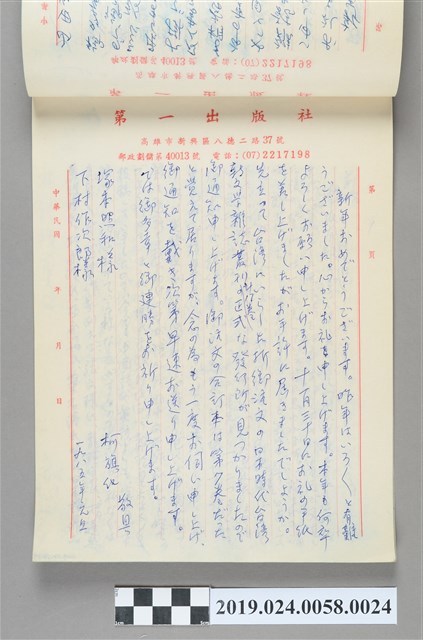 40013
(07)2217198
第一出版社
高雄市新興區八德二路37號
郵政劃儲第40013號 電話:(07)2217198
第 頁
新年おめでとうございます。昨年はいろいろと有難
うございました。心からお礼を申し上げます。本年も何卒
よろしくお願い申し上げます。十一月三十日にお礼の手紙
を差し上げましたがお手許に届きましたでしょうか。
先生が台湾にいらした折御注文の日本時代台湾
新文学雑誌叢刊の正式な発行所が見つかりましたので
御通知申し上げます。御注文の合訂本は第7巻だった
と覚えて居りますが、念の為もう一度お伺い申し上げ、
御通知を戴き次第早速お送り申し上げます。
では御多幸と御連勝をお祈り申し上げます。
敬具
柯旗化
一九八五年元旦
塚本照和様
下村作次郎様
中華民國 年 月 日
2019.024.0058.0024